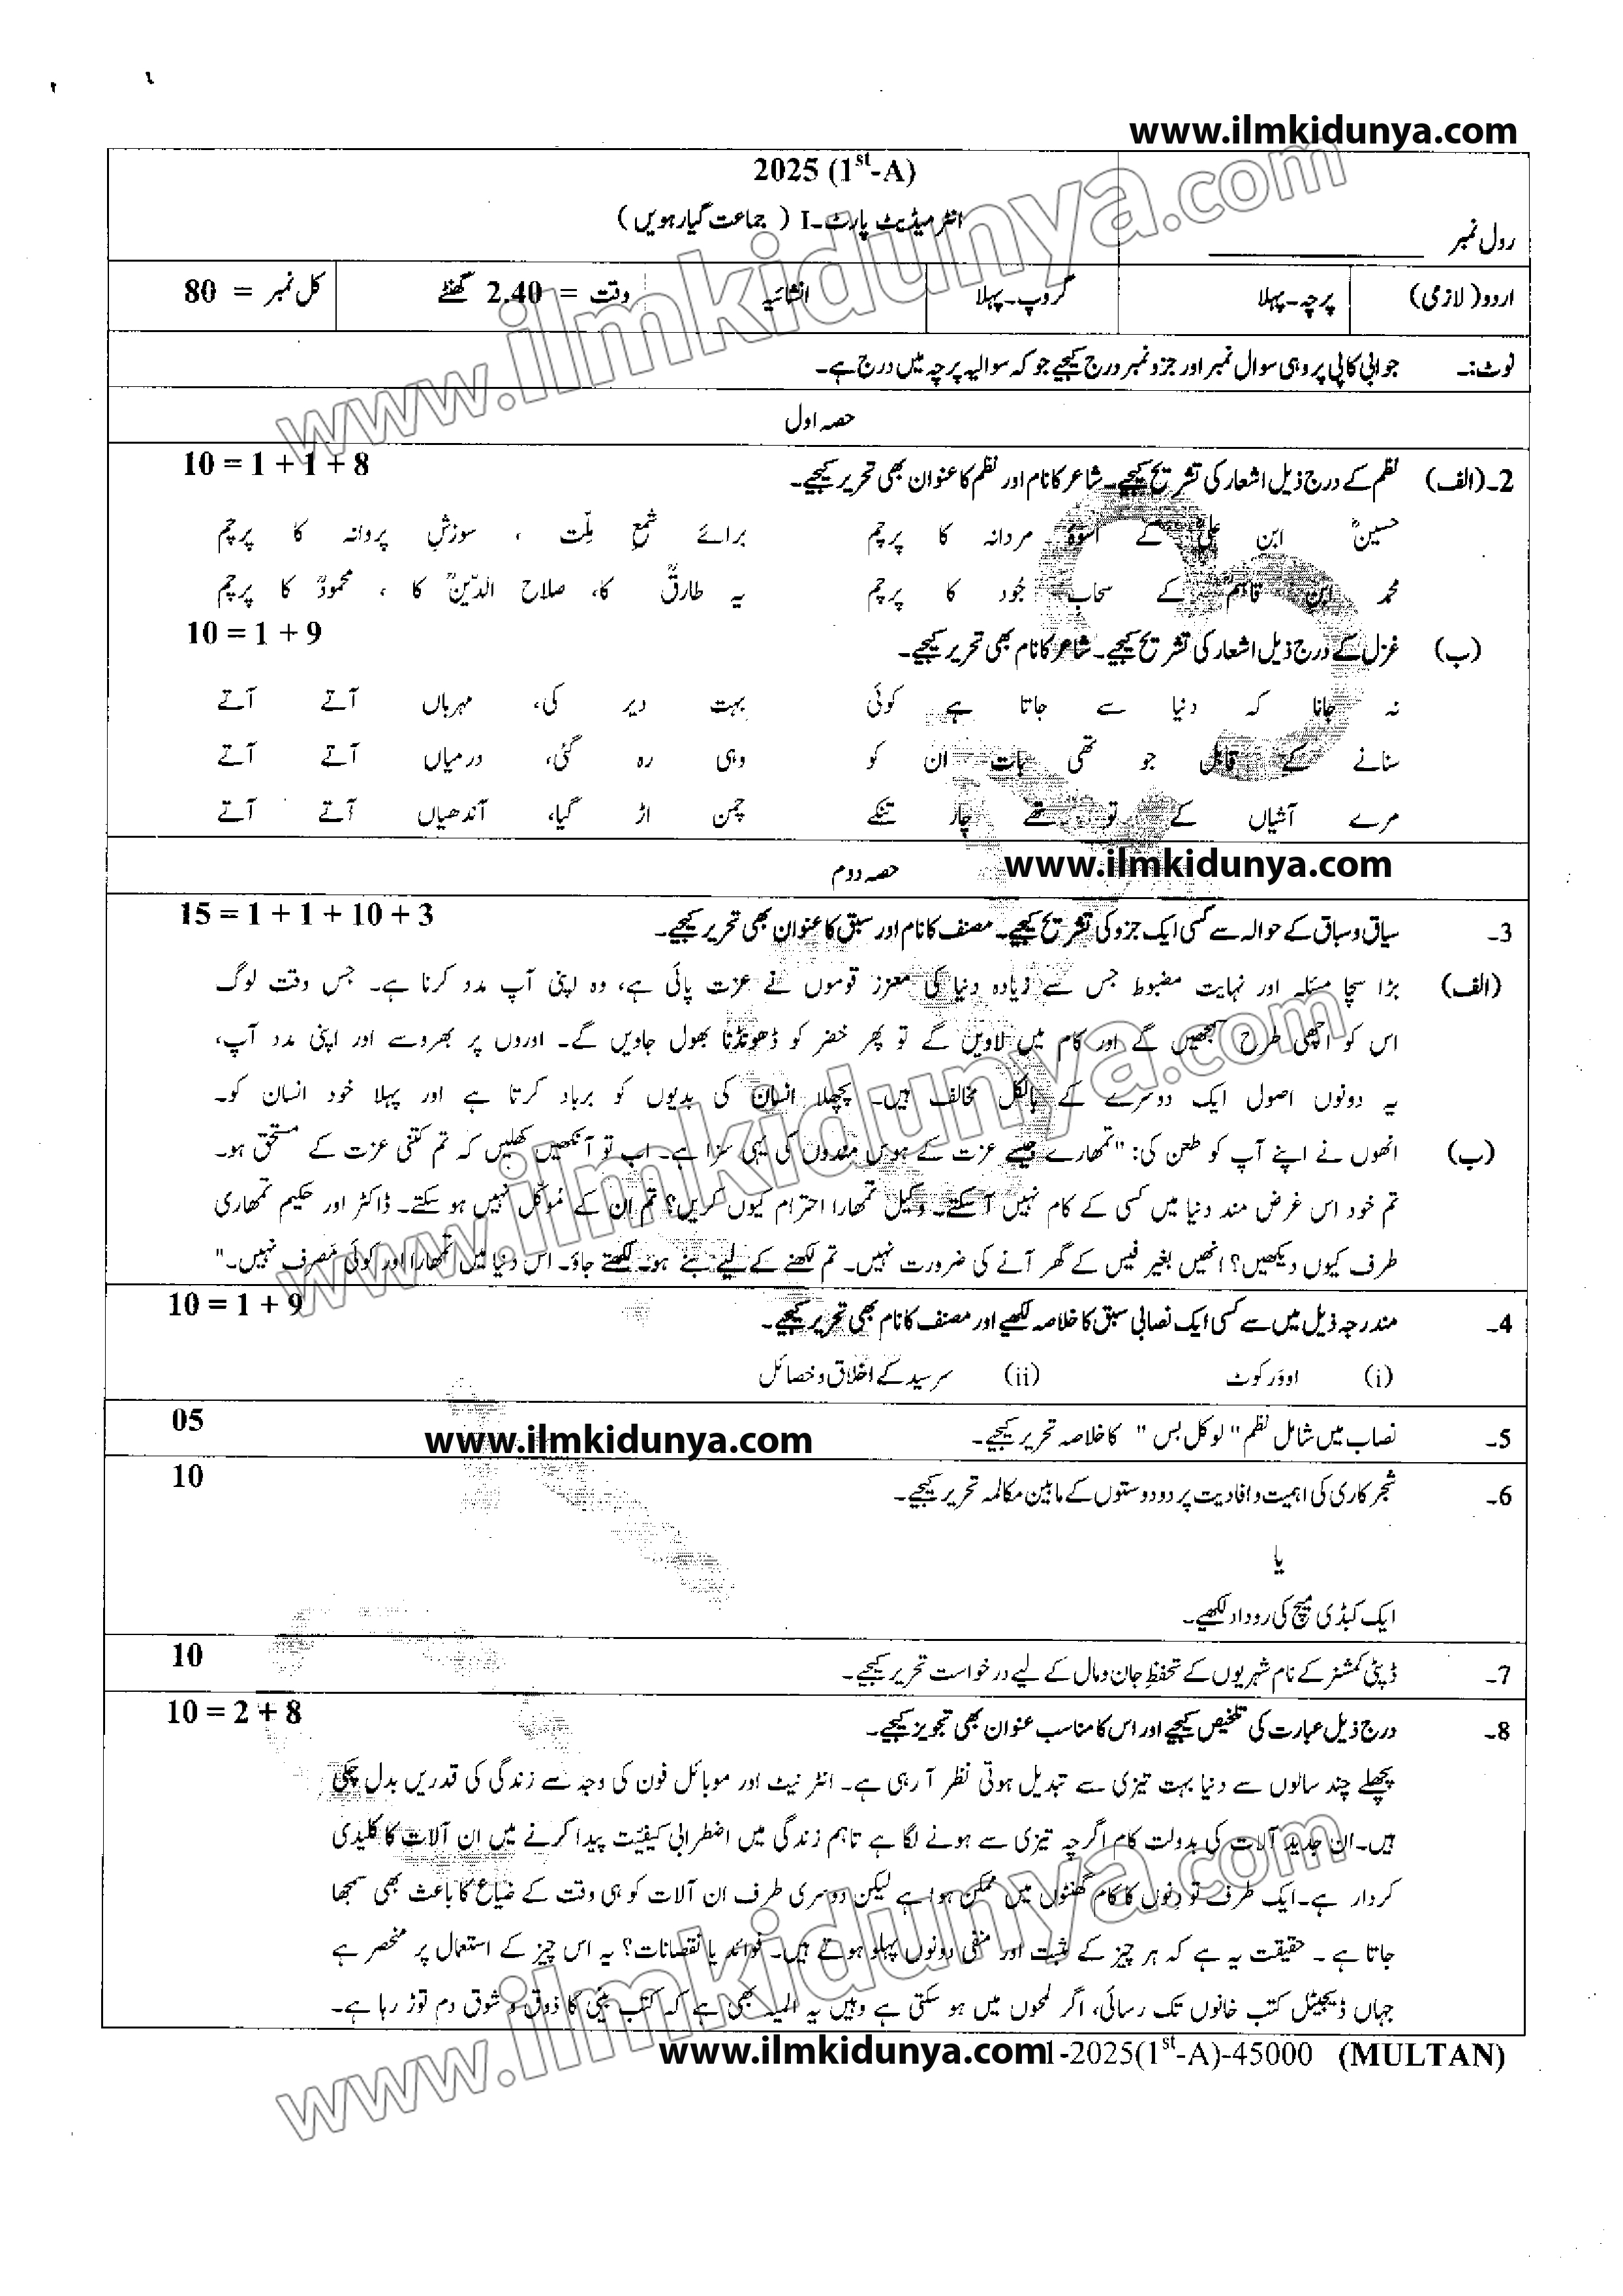 www.ilmkidunya.com
2025 (1st-A)
انٹرمیڈیٹ پارٹ-I (جماعت گیارہویں)
رول نمبر
اردو (لازمی) پرچہ-پہلا گروپ-پہلا انشائیہ وقت = 2.40 گھنٹے کل نمبر = 80
نوٹ:- جوابی کاپی پر وہی سوال نمبر اور جزو نمبر درج کیجیے جو کہ سوالیہ پرچہ میں درج ہے۔
حصہ اول
2-(الف) نظم کے درج ذیل اشعار کی تشریح کیجیے۔ شاعر کا نام اور نظم کا عنوان بھی تحریر کیجیے۔ 10 = 1 + 1 + 8
حسینؓ ابن علیؓ کے اسوۂ مردانہ کا پرچم برائے شمعِ ملّت ، سوزشِ پروانہ کا پرچم
محمد ابن قاسمؒ کے سحابِ جُود کا پرچم یہ طارقؒ کا، صلاح الدّینؒ کا ، محمودؒ کا پرچم
(ب) غزل کے درج ذیل اشعار کی تشریح کیجیے۔ شاعر کا نام بھی تحریر کیجیے۔ 10 = 1 + 9
نہ جانا کہ دنیا سے جاتا ہے کوئی بہت دیر کی، مہرباں آتے آتے
سنانے کے قابل جو تھی بات ان کو وہی رہ گئی، درمیاں آتے آتے
مرے آشیاں کے تو تھے چار تنکے چمن اڑ گیا، آندھیاں آتے آتے
www.ilmkidunya.com
حصہ دوم
3- سیاق و سباق کے حوالہ سے کسی ایک جزو کی تشریح کیجیے۔ مصنف کا نام اور سبق کا عنوان بھی تحریر کیجیے۔ 15 = 1 + 1 + 10 + 3
(الف) بڑا سچا مسئلہ اور نہایت مضبوط جس سے زیادہ دنیا کی معزز قوموں نے عزت پائی ہے، وہ اپنی آپ مدد کرنا ہے۔ جس وقت لوگ
اس کو اچھی طرح سمجھیں گے اور کام میں لاویں گے تو پھر خضر کو ڈھونڈنا بھول جاویں گے۔ اوروں پر بھروسے اور اپنی مدد آپ،
یہ دونوں اصول ایک دوسرے کے بالکل مخالف ہیں۔ پچھلا انسان کی بدیوں کو برباد کرتا ہے اور پہلا خود انسان کو۔
(ب) انھوں نے اپنے آپ کو طعن کی: "تمھارے جیسے عزت کے ہوس مندوں کی یہی سزا ہے۔ اب تو آنکھیں کھلیں کہ تم کتنی عزت کے مستحق ہو۔
تم خود اس غرض مند دنیا میں کسی کے کام نہیں آ سکتے۔ وکیل تمھارا احترام کیوں کریں؟ تم ان کے مُوکل نہیں ہو سکتے۔ ڈاکٹر اور حکیم تمھاری
طرف کیوں دیکھیں؟ انھیں بغیر فیس کے گھر آنے کی ضرورت نہیں۔ تم لکھنے کے لیے بنے ہو۔ لکھتے جاؤ۔ اس دنیا میں تمھارا اور کوئی مصرف نہیں۔"
4- مندرجہ ذیل میں سے کسی ایک نصابی سبق کا خلاصہ لکھیے اور مصنف کا نام بھی تحریر کیجیے۔ 10 = 1 + 9
(i) اوورکوٹ (ii) سرسید کے اخلاق و خصائل
5- نصاب میں شامل نظم "لوکل بس" کا خلاصہ تحریر کیجیے۔ 05
www.ilmkidunya.com
6- شجر کاری کی اہمیت و افادیت پر دو دوستوں کے مابین مکالمہ تحریر کیجیے۔ 10
یا
ایک کبڈی میچ کی روداد لکھیے۔
7- ڈپٹی کمشنر کے نام شہریوں کے تحفظِ جان و مال کے لیے درخواست تحریر کیجیے۔ 10
8- درج ذیل عبارت کی تلخیص کیجیے اور اس کا مناسب عنوان بھی تجویز کیجیے۔ 10 = 2 + 8
پچھلے چند سالوں سے دنیا بہت تیزی سے تبدیل ہوتی نظر آ رہی ہے۔ انٹرنیٹ اور موبائل فون کی وجہ سے زندگی کی قدریں بدل چکی
ہیں۔ان جدید آلات کی بدولت کام اگرچہ تیزی سے ہونے لگا ہے تاہم زندگی میں اضطرابی کیفیّت پیدا کرنے میں ان آلات کا کلیدی
کردار ہے۔ایک طرف تو دنوں کا کام گھنٹوں میں ممکن ہوا ہے لیکن دوسری طرف ان آلات کو ہی وقت کے ضیاع کا باعث بھی سمجھا
جاتا ہے ۔ حقیقت یہ ہے کہ ہر چیز کے مثبت اور منفی دونوں پہلو ہوتے ہیں۔ فوائد یا نقصانات؟ یہ اس چیز کے استعمال پر منحصر ہے
جہاں ڈیجیٹل کتب خانوں تک رسائی، اگر لمحوں میں ہو سکتی ہے وہیں یہ المیہ بھی ہے کہ کتب بینی کا ذوق و شوق دم توڑ رہا ہے۔
www.ilmkidunya.com1-2025(1st-A)-45000 (MULTAN)